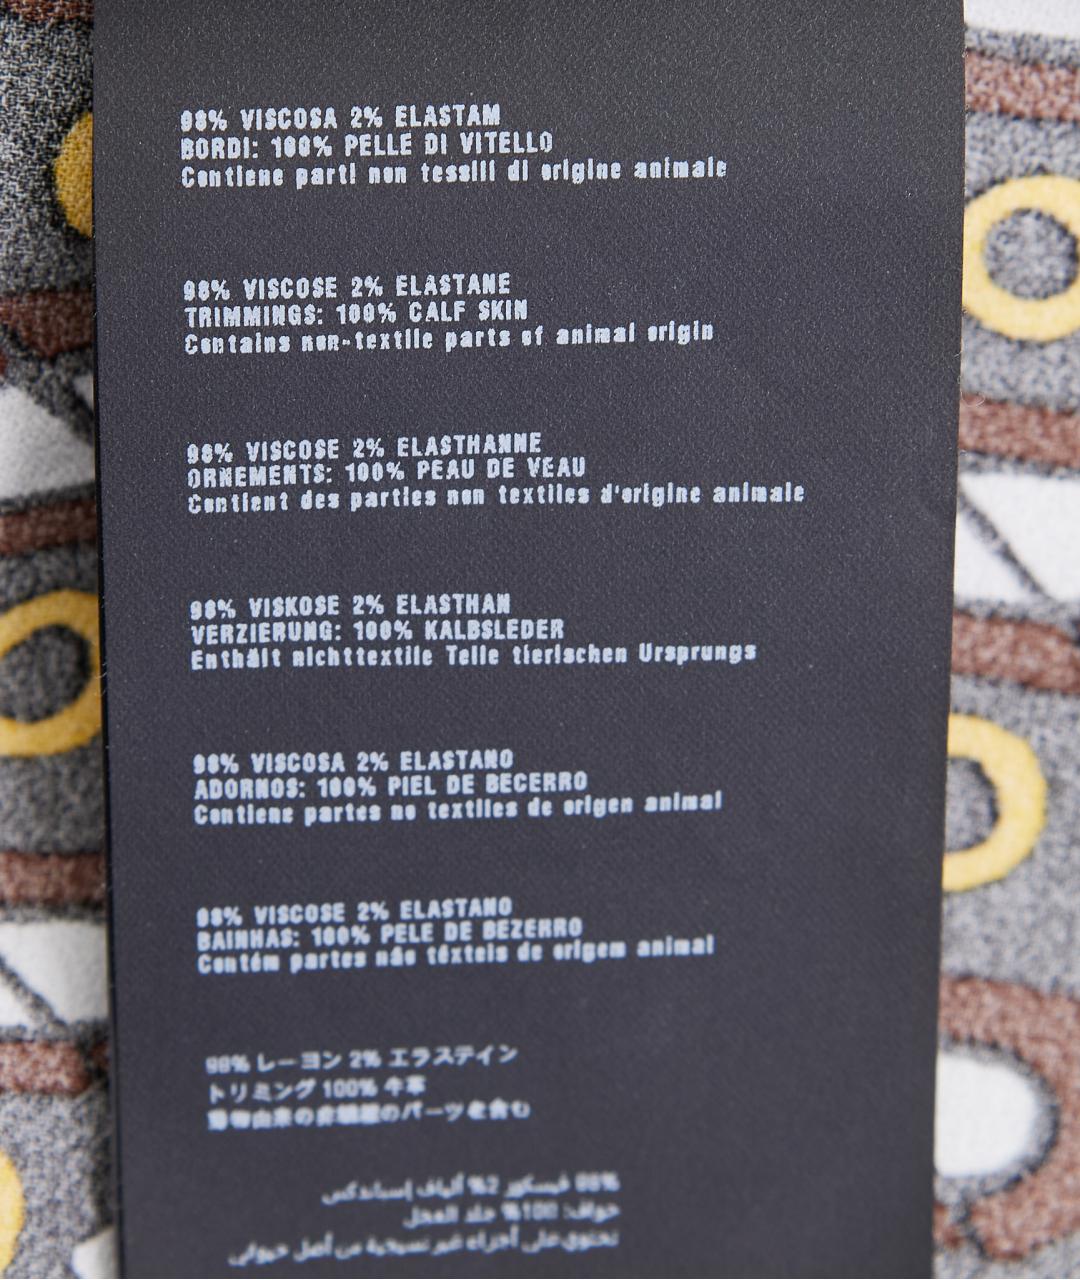 98% VISCOSA 2% ELASTAM
BORDI: 100% PELLE DI VITELLO
Contiene parti non tessili di origine animale
98% VISCOSE 2% ELASTANE
TRIMMINGS: 100% CALF SKIN
Contains non-textile parts of animal origin
98% VISCOSE 2% ELASTHANNE
ORNEMENTS: 100% PEAU DE VEAU
Contient des parties non textiles d'origine animale
98% VISKOSE 2% ELASTHAN
VERZIERUNG: 100% KALBSLEDER
Enthält nichttextile Teile tierischen Ursprungs
98% VISCOSA 2% ELASTANO
ADORNOS: 100% PIEL DE BECERRO
Contiene partes no textiles de origen animal
98% VISCOSE 2% ELASTANO
BAINHAS: 100% PELE DE BEZERRO
Contém partes não têxteis de origem animal
98% レーヨン 2% エラステイン
トリミング 100% 牛革
動物由来の非繊維のパーツを含む
98% فيسكوز 2% ألياف إسباندكس
حواف: 100% جلد العجل
تحتوي على أجزاء غير نسيجية من أصل حيواني